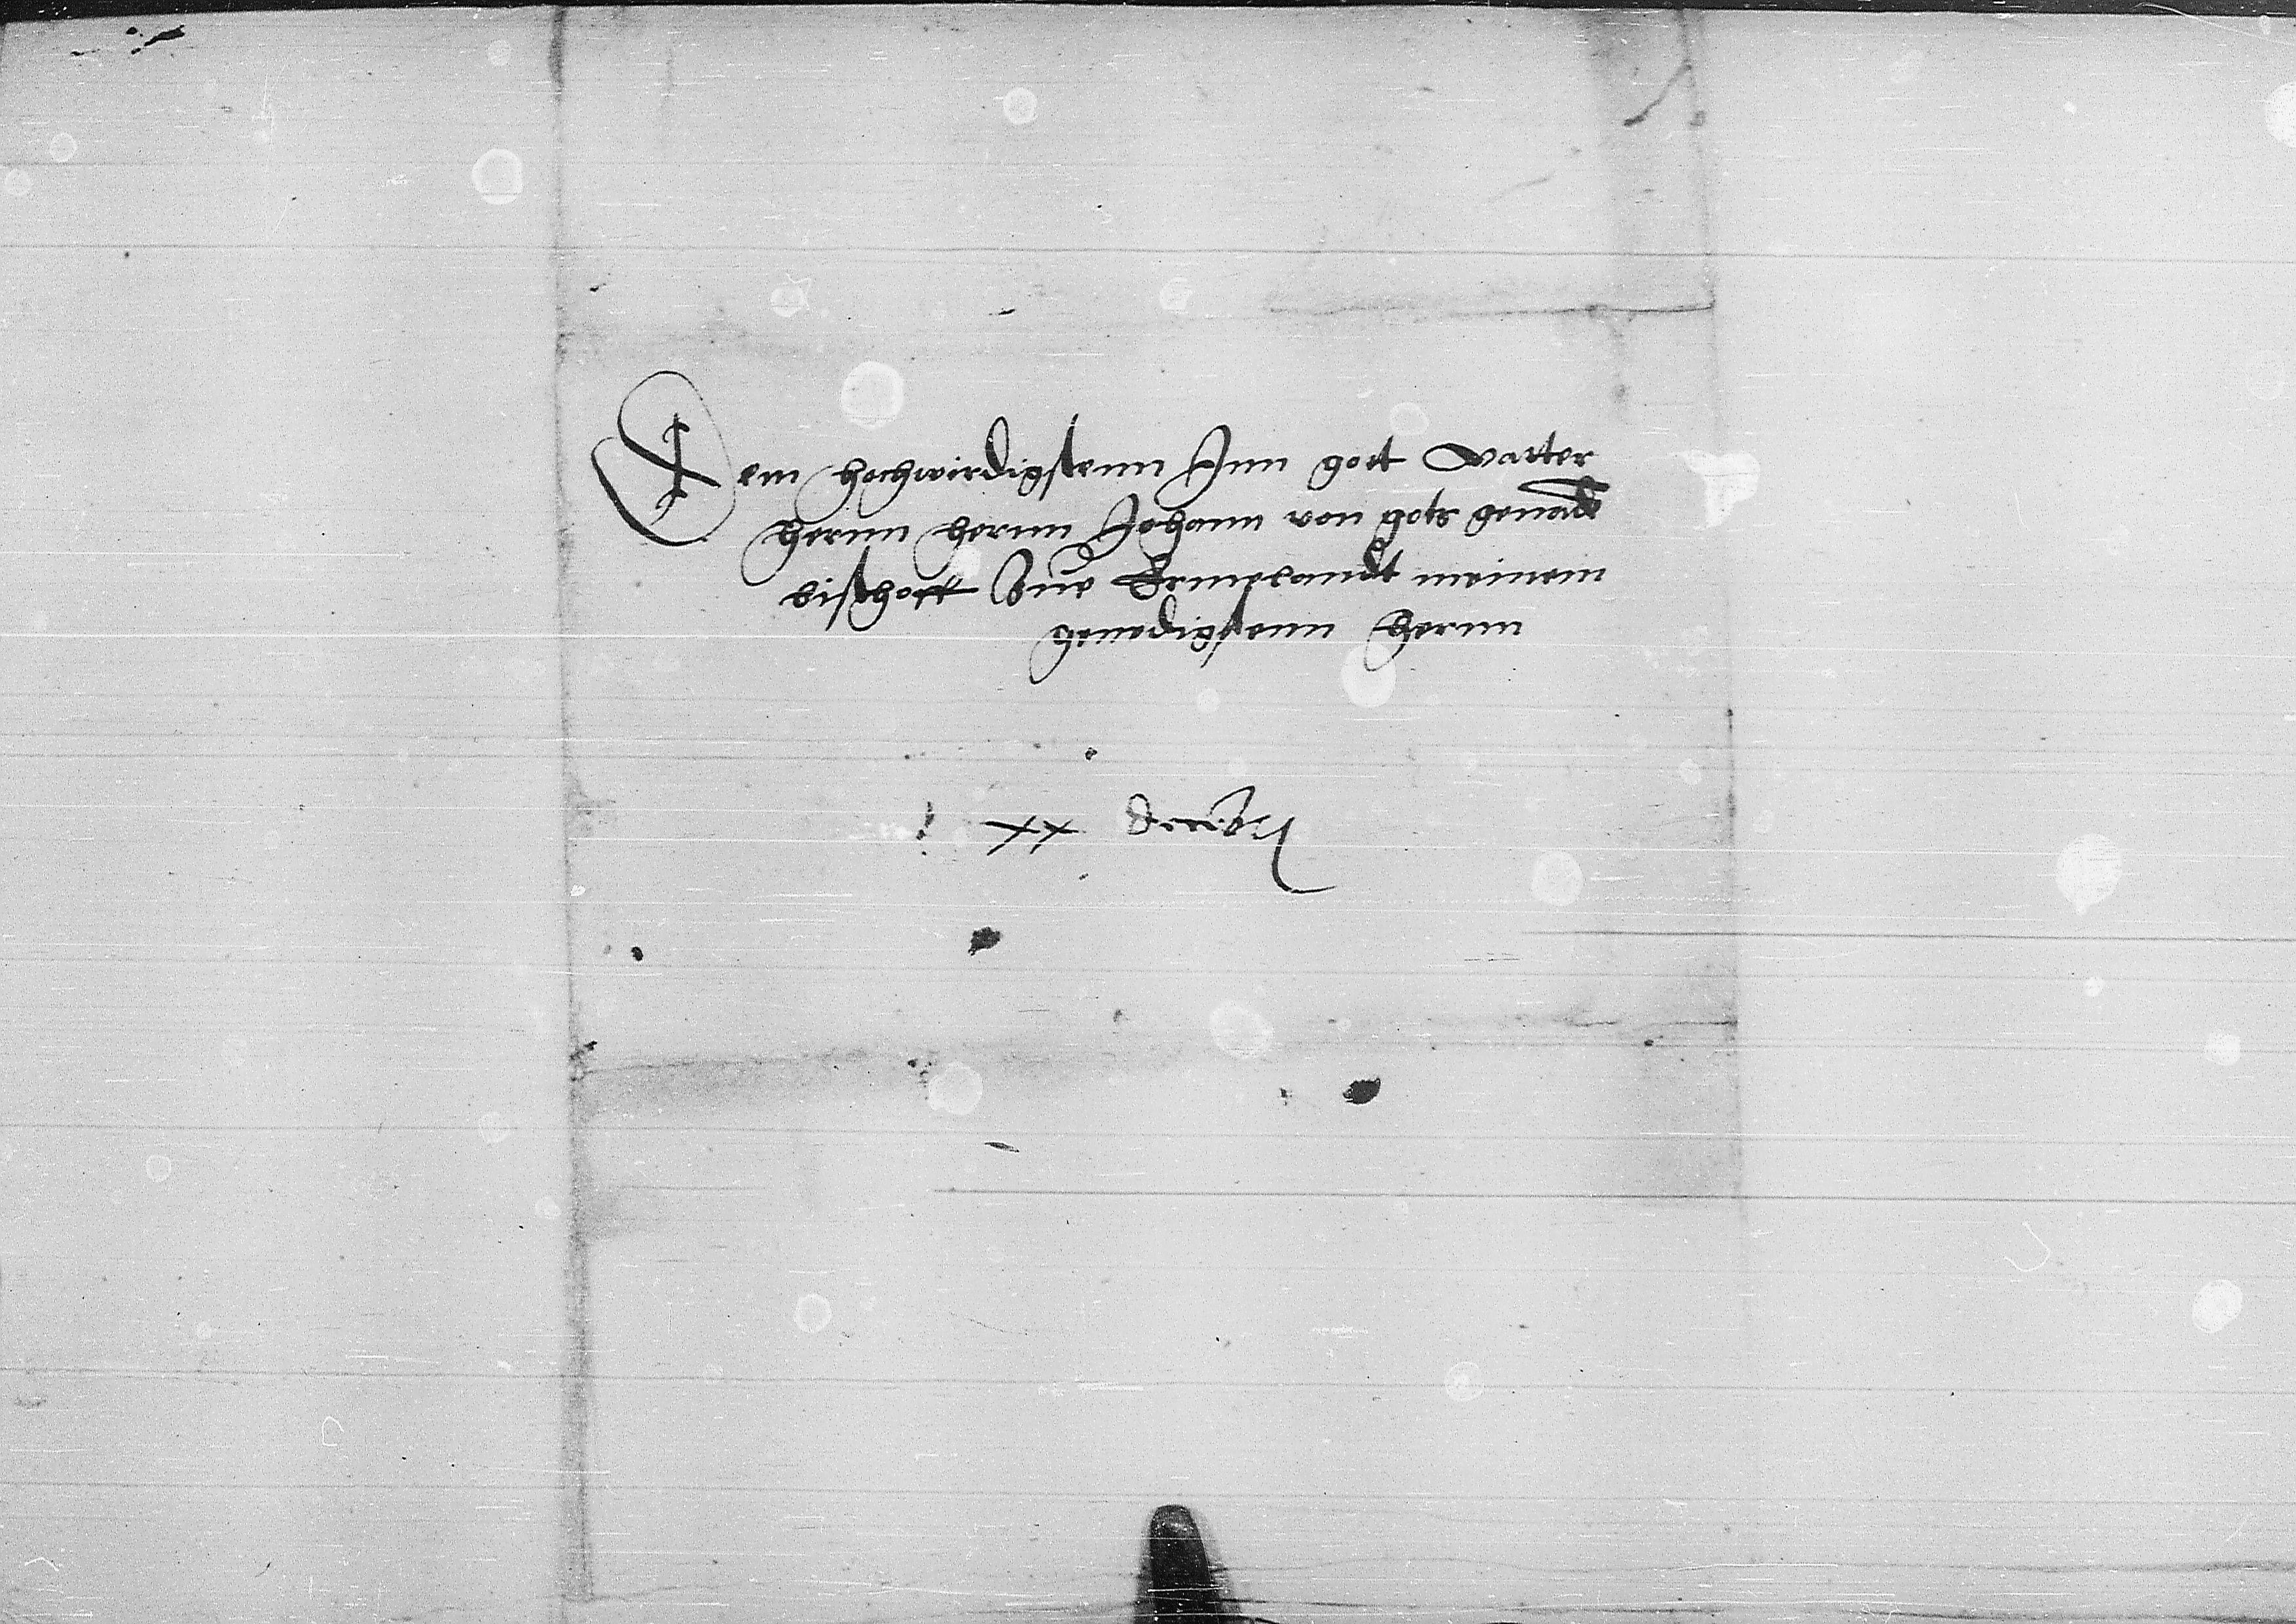 Dem hochwirdigstenn Inn gott Vatter
herrnn herrnn Johann von gots genade
bischoff Zue Ermelandt meinem
genedigstenn herrnn
xx